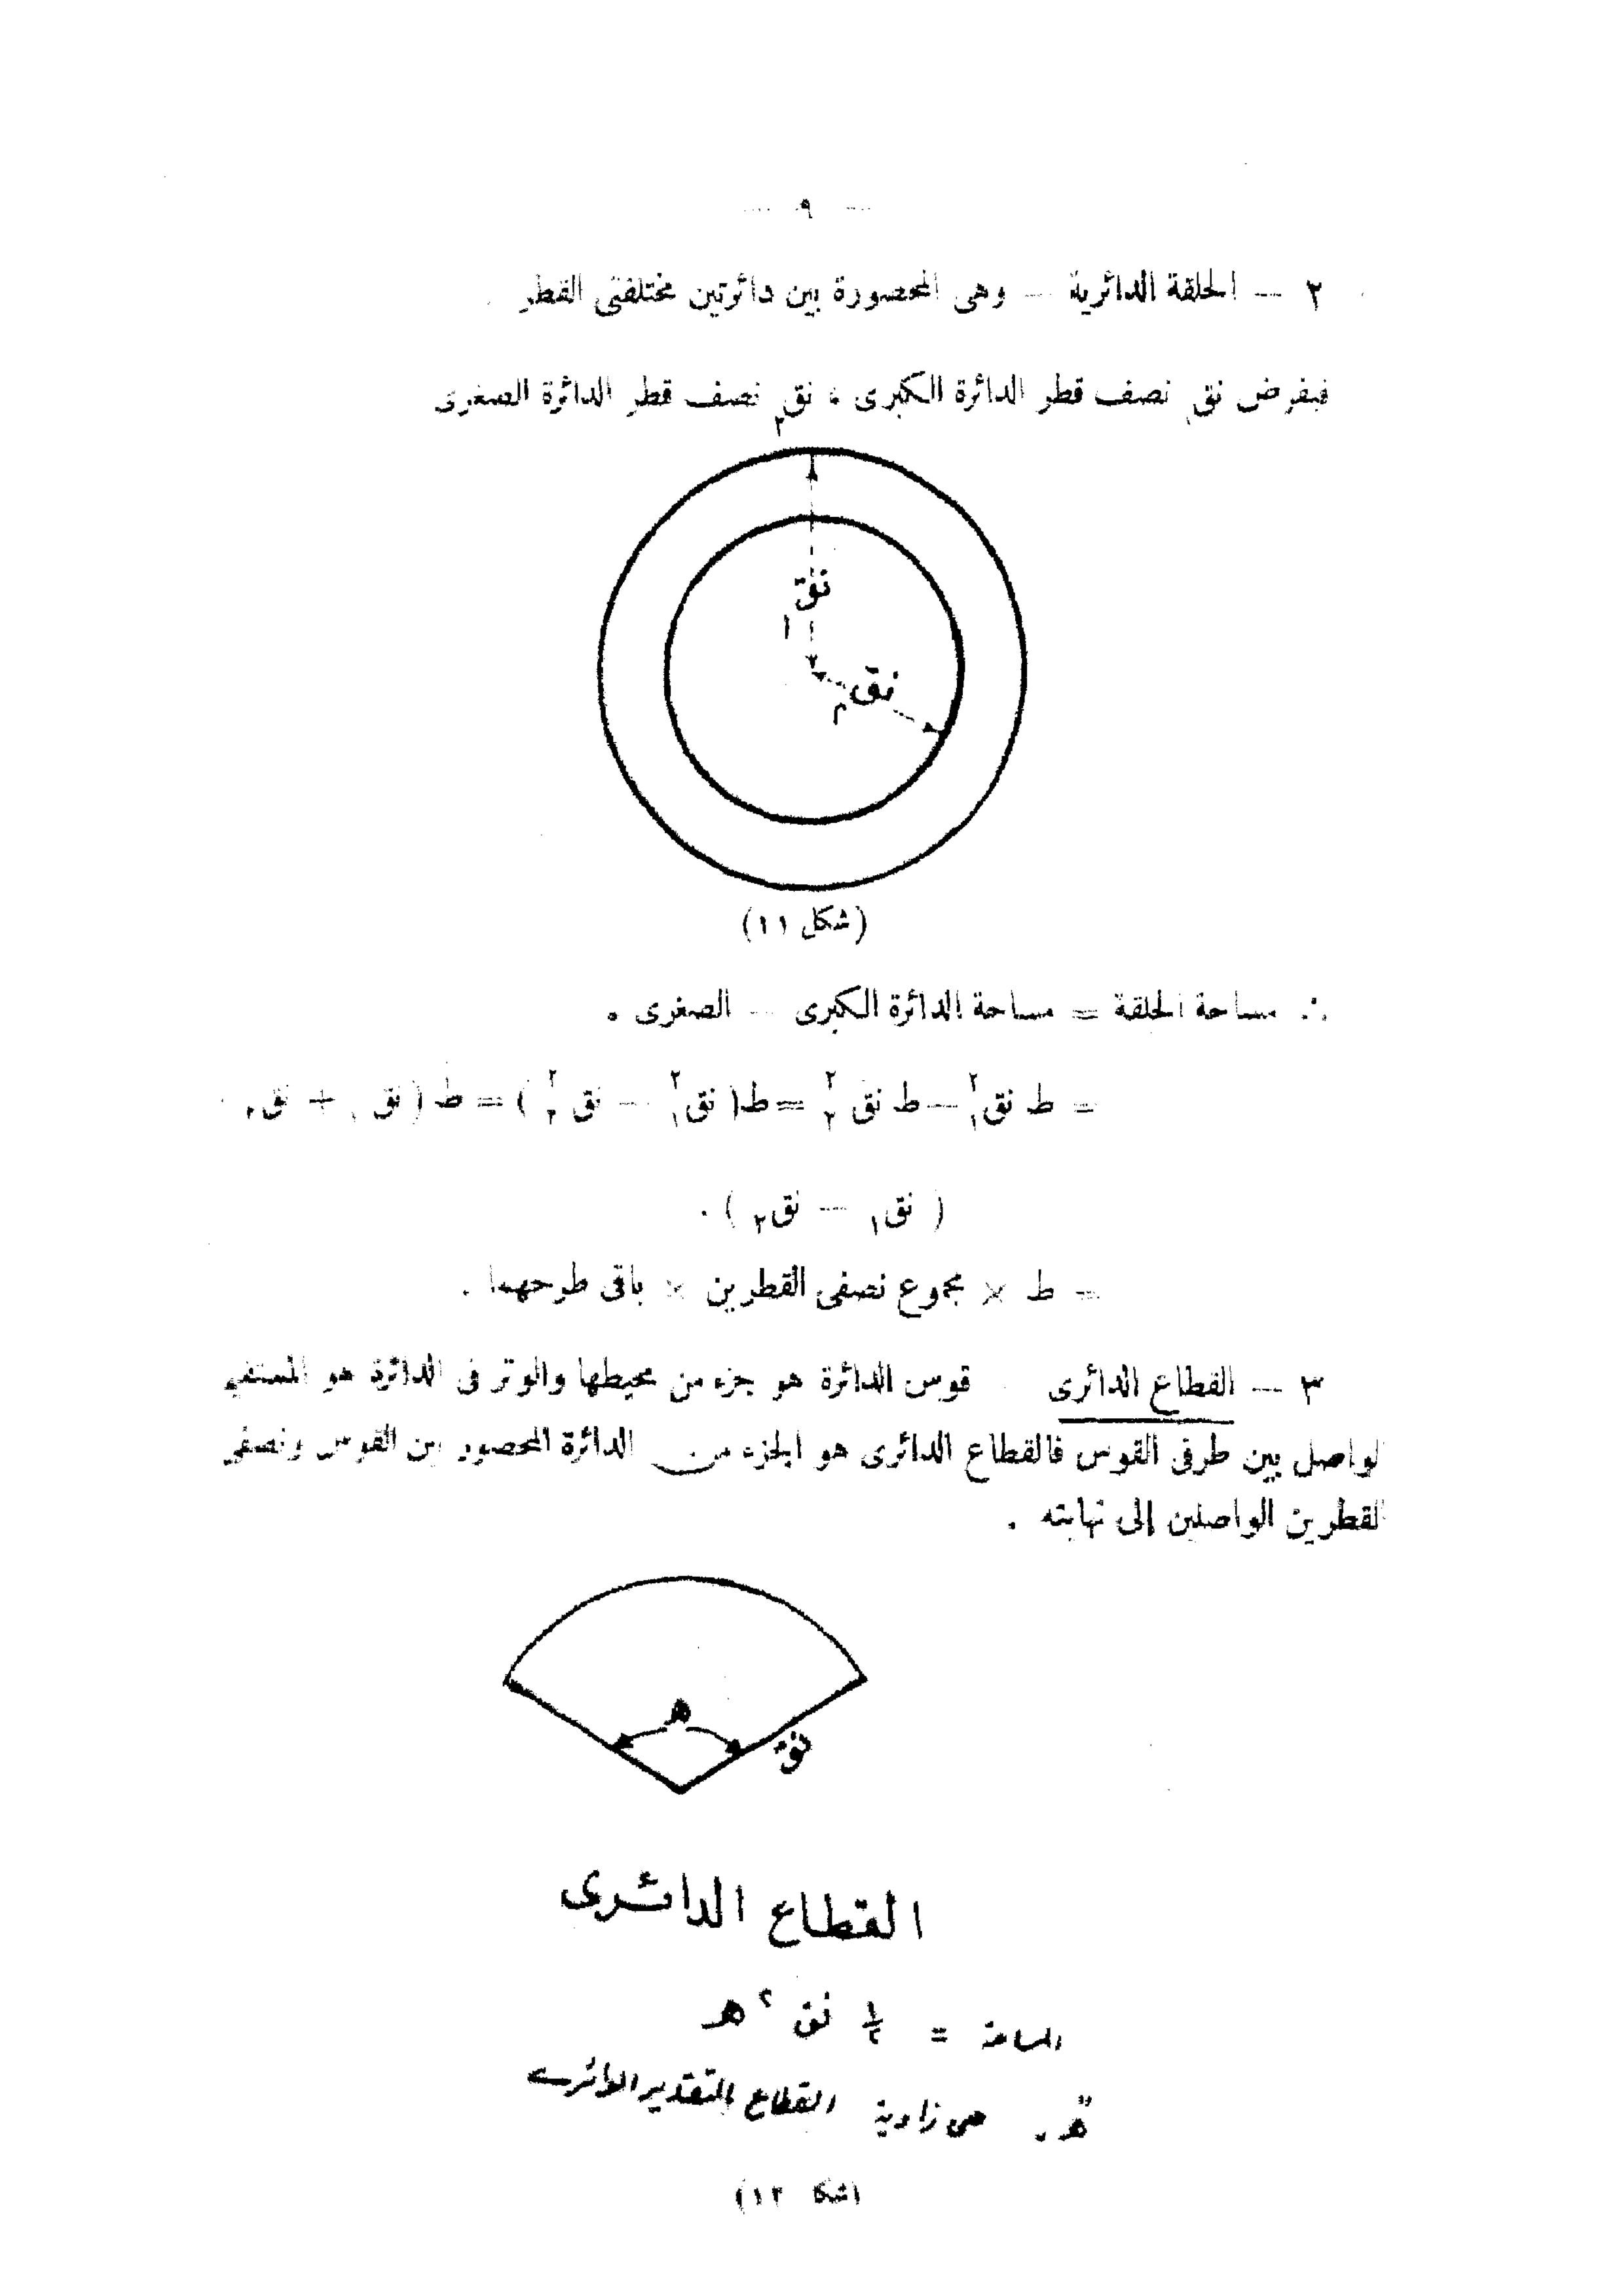 — ٩ —
٢ — الحلقة الدائرية — وهى المحصورة بين دائرتين مختلفتى القطر
فبفرض نق١ نصف قطر الدائرة الكبرى ، نق٢ نصف قطر الدائرة الصغرى
نق١
نق٢
(شكل ١١)
∴ مساحة الحلقة = مساحة الدائرة الكبرى — الصغرى .
= ط نق١² — ط نق٢² = ط( نق١² — نق٢² ) = ط ( نق١ + نق٢
( نق١ — نق٢ ) .
= ط × مجموع نصفى القطرين × باقى طرحهما .
٣ — القطاع الدائرى قوس الدائرة هو جزء من محيطها والوتر فى الدائرة هو المستقيم
لواصل بين طرفى القوس فالقطاع الدائرى هو الجزء من الدائرة المحصور بين القوس ونصفى
لقطرين الواصلين إلى نهايته .
ه
نق
القطاع الدائرى
المساحة = ١/٢ نق² ه
"ه" هى زاوية القطاع بالتقدير الدائرى
(شكل ١٢)